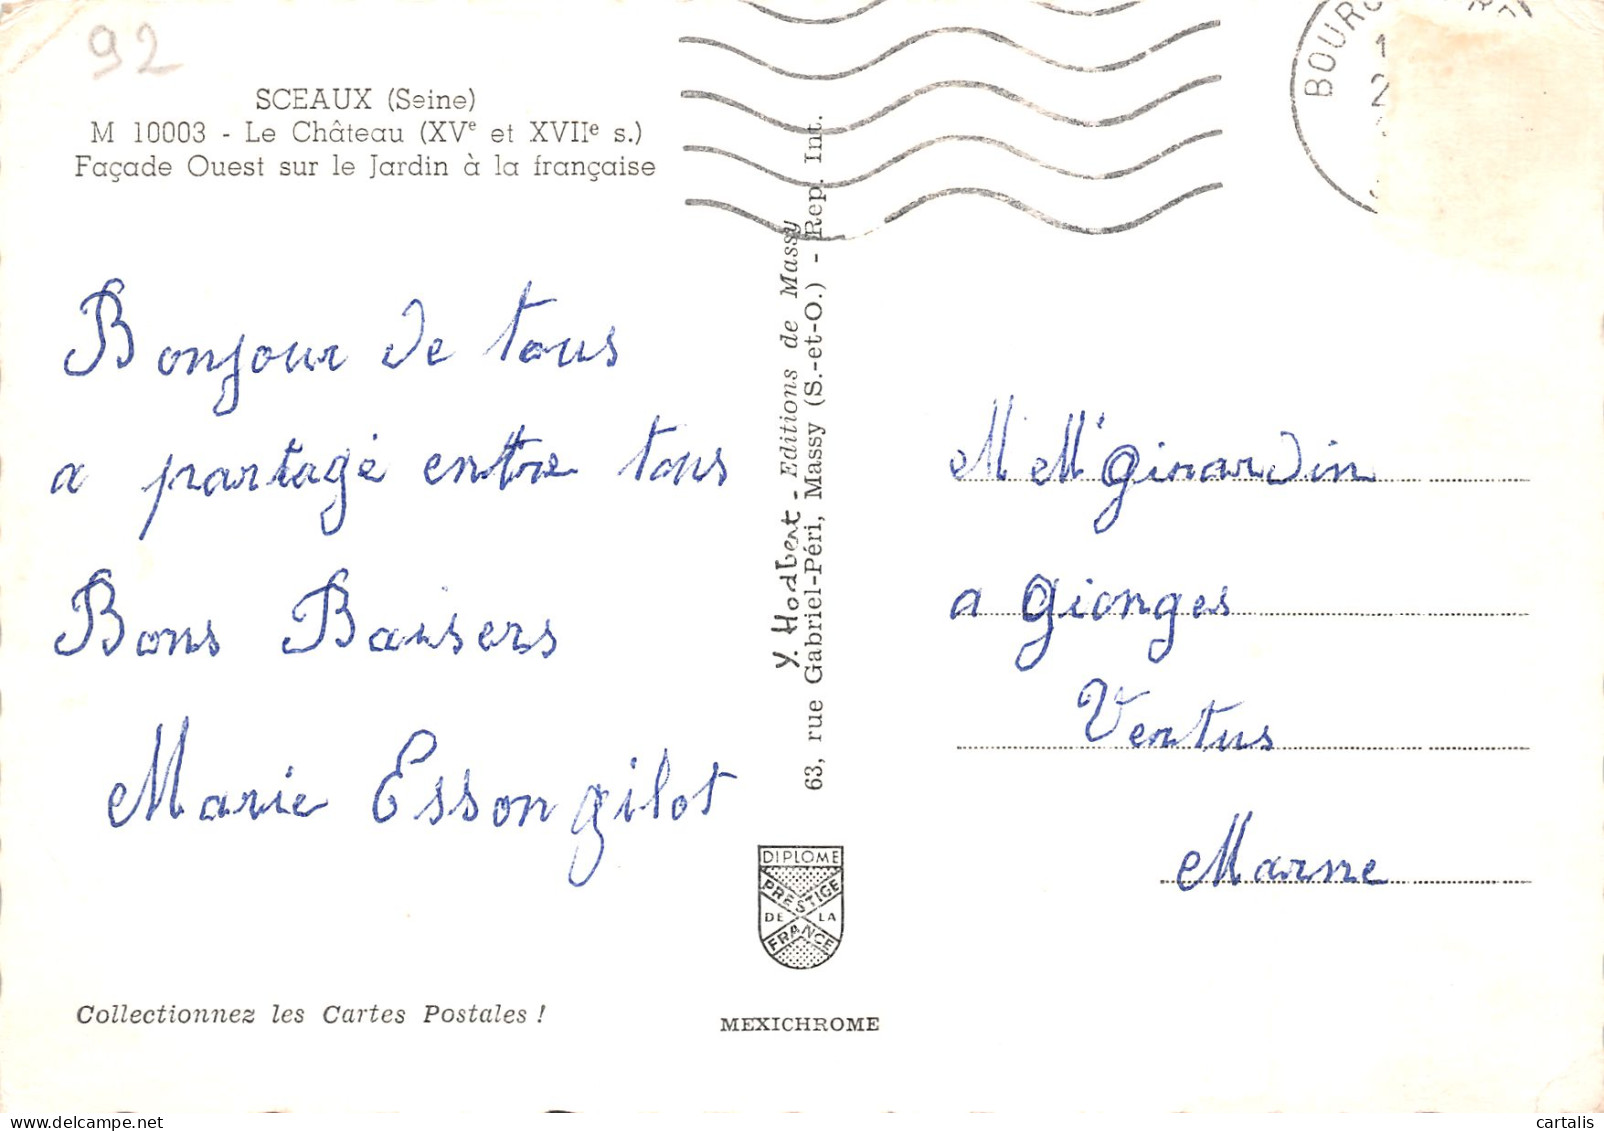 92
SCEAUX (Seine)
M 10003 - Le Château (XVe et XVIIe s.)
Façade Ouest sur le Jardin à la française
Bonjour de tous
a partagé entre tous
Bons Baisers
Marie Essongilot
Collectionnez les Cartes Postales !
Y. Hodbert - Editions de Massy
63, rue Gabriel-Péri, Massy (S.-et-O.) - Rep. Int.
DIPLOME
PRESTIGE
DE LA
FRANCE
MEXICHROME
M M Girardin
a Gionges
Vertus
Marne
cartalis